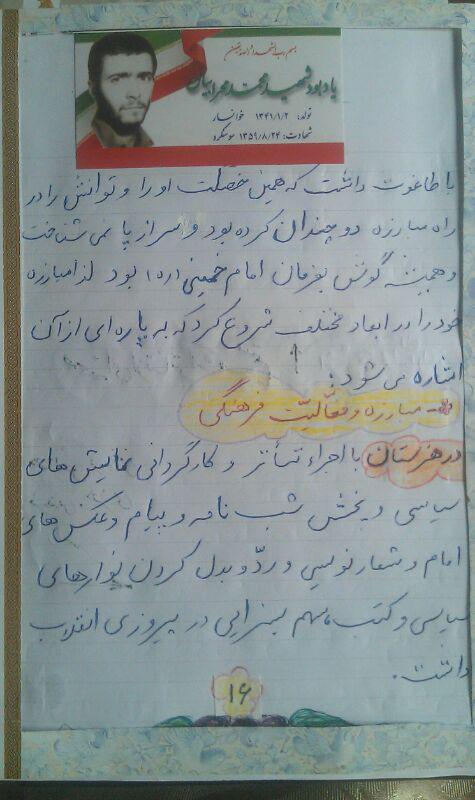 بسم رب الشهداء والصدیقین
یادبود شهید محمد محرابیان
تولد: ۱۳۴۱/۱/۲ خوانسار
شهادت: ۱۳۵۹/۸/۲۴ سوسنگرد
با طاغوت داشت که همین خصلت او را و توانش را در
راه مبارزه دو چندان کرده بود و سر از پا نمی شناخت
و همیشه گوش بفرمان امام خمینی (ره) بود لذا مبارزه
خود را در ابعاد مختلف شروع کرد که به پاره ای از آن
اشاره می شود:
مبارزه و فعالیّت فرهنگی
در هنرستان با اجراء تئاتر و کارگردانی نمایش های
سیاسی و پخش شب نامه و پیام و عکس های
امام و شعار نویسی و ردّ و بدل کردن نوارهای
سیاسی و کتب، سهم بسزایی در پیروزی انقلاب
داشت.
۱۶